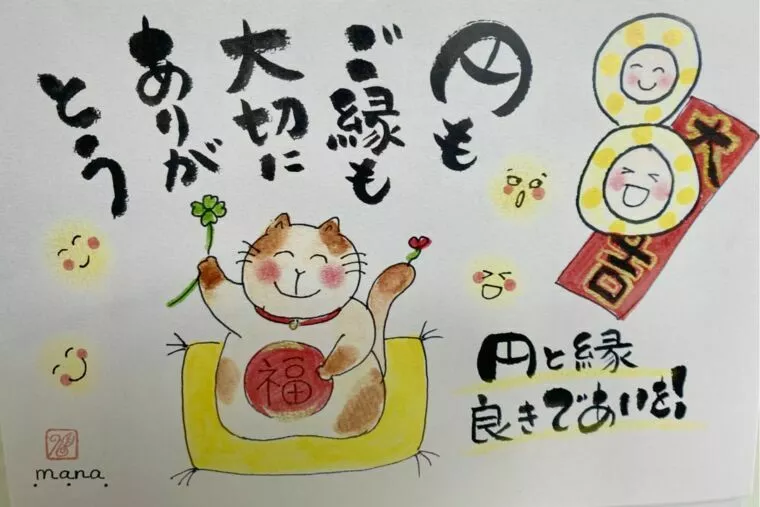 円も
ご縁も
大切に
ありが
とう
大吉
福
円と縁
良きであいを!
mana